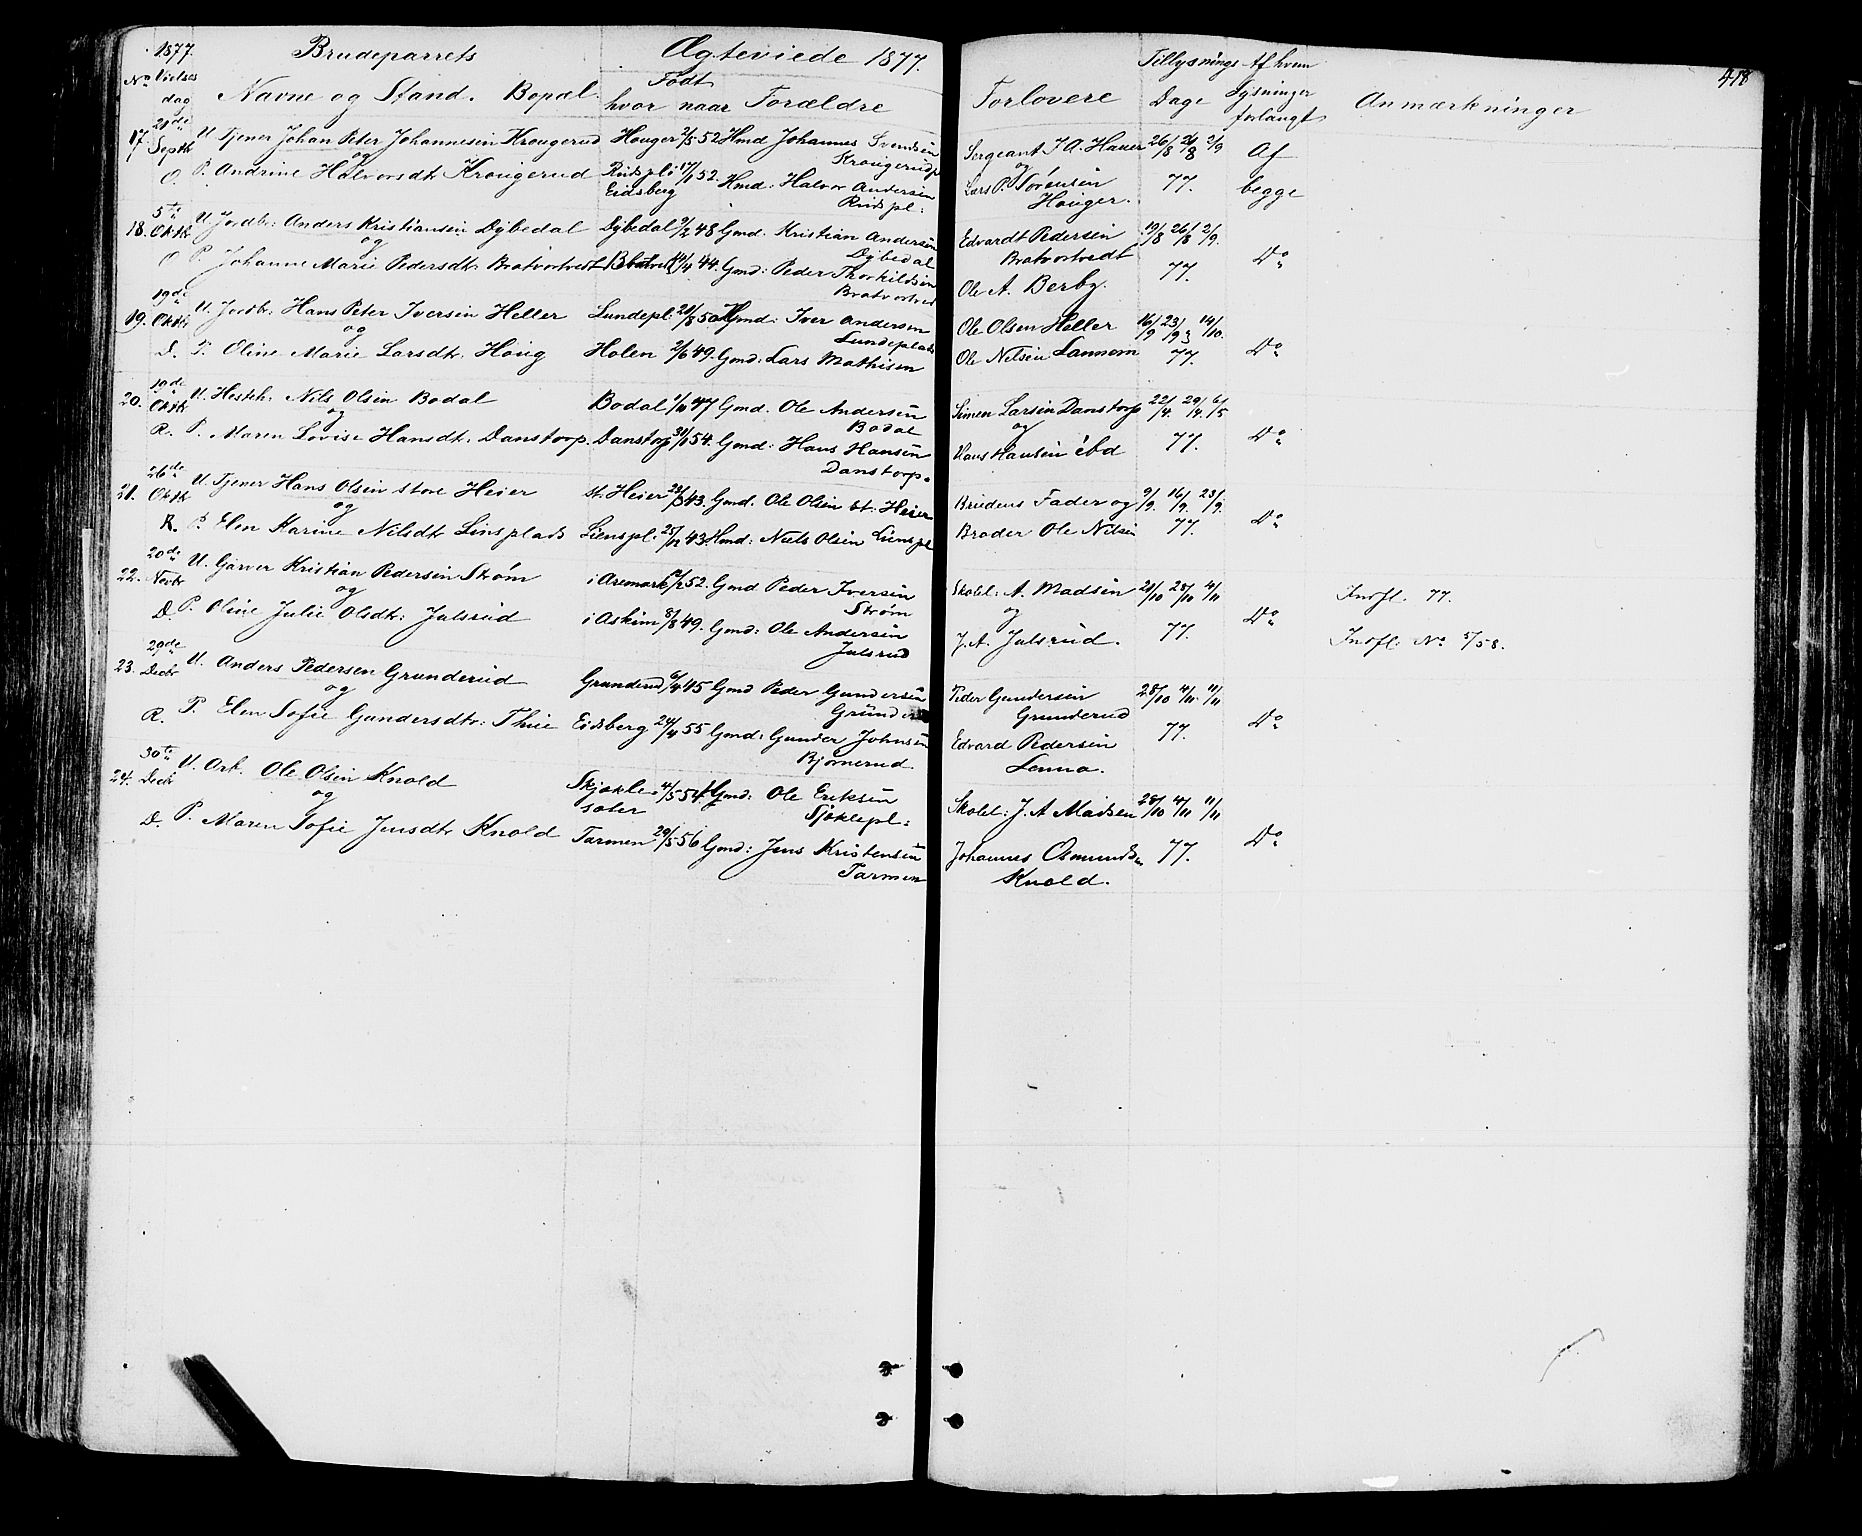 1877. Brudeparrets Ægteviede 1877. Tillysnings Af hvem 418
No Vielses dag Navne og Stand. Bopæl. Født hvor naar Forældre Forlovere Dage Lysninger forlangt Anmærkninger
21de
17. Septbr U. Tjener Johan Peter Johannesen Krougerud Houger 2/5 52 Hmd Johannes Svendsen Sergeant J A. Hauer 26/8 2/9 Af
og Krougerudp og
O. P. Andrine Halvorsdtr Krougerud Rudspl i 17/1 52. Hmd. Halvor Andersen Lars P. Sørensen 77. begge
Eidsberg Rudspl: Houger.
5te
18. Oktbr U. Jordbr: Anders Kristiansen Dybedal Dybedal 9/2 48 Gmd. Kristian Andersen Edvardt Pedersen 19/8 26/8 2/9.
og Dybedal Bratvortvedt Do
O P. Johanne Marie Pedersdtr. Bratvortvedt 44. Gmd: Peder Thorkildsen Ole A. Berby. 77.
Bratvortved
19de
19. Oktbr U. Jordbr: Hans Peter Iversen Heller Lundepl: 21/8 50 Hmd: Iver Andersen Ole Olsen Heller 16/9 23/9 14/10.
og Lundeplads Do
D. P. Oline Marie Larsdtr. Houg Holen 2/6 49. Gmd: Lars Mathisen Ole Nilsen Lannem 77.
19de
20. Oktbr U. Hesteh. Nils Olsen Bodal Bodal 47 Gmd. Ole Andersen Simen Larsen Danstorp 22/4. 29/4. 6/5
og Bodal og Do
R. P. Maren Lovise Hansdt. Danstorp. Danstorp 54. Gmd: Hans Hansen Hans Hansen ibd 77.
Danstorp.
26de
21. Oktbr U. Tjener Hans Olsen store Heier st. Heier 23/3 43. Gmd. Ole Olsen st. Heier Brudens Fader og 9/9. 16/9. 23/9.
og Do
R. P. Elen Karine Nilsdtr Linsplads Lienspl. 25/12 43. Hmd: Niels Olsen Lienspl Broder Ole Nilsen 77.
20de
22. Novbr U. Garver Kristian Pedersen Strøm i Aremark 52. Gmd Peder Iversen Skolel: A. Madsen 21/10 28/10 4/11 Indfl. 77.
og Strøm og Do
D. P. Oline Julie Olsdtr: Julsrud i Askim 8/8 49. Gmd: Ole Andersen J. A. Julsrud. 77. Indfl. No 5/58.
Julsrud
29de
23. Decbr U. Anders Pedersen Grunderud Grunderud 6/4 45 Gmd Peder Gundersen Peder Gundersen 28/10 4/11. 11/11
og Grunderud Do
R. P. Elen Sofie Gundersdtr: Thue Eidsberg 24/4 55 Gmd: Gunder Johnsen Edvard Pedersen 77.
Bjørnerud. Lenna.
30te
24. Decbr U. Arb. Ole Olsen Knold Skjøkle- 4/5 54 Gmd: Ole Eriksen Skolel: J. A Madsen 28/10 4/11 11/11
og sæter Sjøklepl: Do
D. P. Maren Sofie Jensdtr Knold Tarmen 29/5 56 Gmd: Jens Kristensen Johannes Osmundsen 77.
Tarmen Knold.